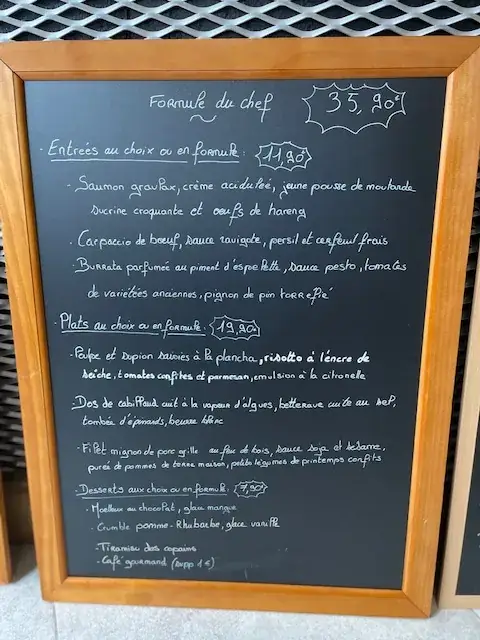 Formule du chef 35,90€
- Entrées au choix ou en formule : 11,90€
- Saumon gravlax, crème acidulée, jeune pousse de moutarde
sucrine croquante et oeufs de hareng
- Carpaccio de boeuf, sauce ravigote, persil et cerfeuil frais
- Burrata parfumée au piment d'espelette, sauce pesto, tomates
de variétées anciennes, pignon de pin torréfié
- Plats au choix ou en formule : 19,90€
- Poulpe et supion saisies à la plancha, risotto à l'encre de
seiche, tomates confites et parmesan, emulsion à la citronelle
- Dos de cabillaud cuit à la vapeur d'algues, betterave cuite au sel,
tombée d'épinards, beurre blanc
- Filet mignon de porc grille au feu de bois, sauce soja et sésame,
purée de pommes de terre maison, petits légumes de printemps confits
Desserts aux choix ou en formule : 7,90€
- Moelleux au chocolat, glace mangue
- Crumble pomme-Rhubarbe, glace vanille
- Tiramisu des copains
- Café gourmand (supp 1€)